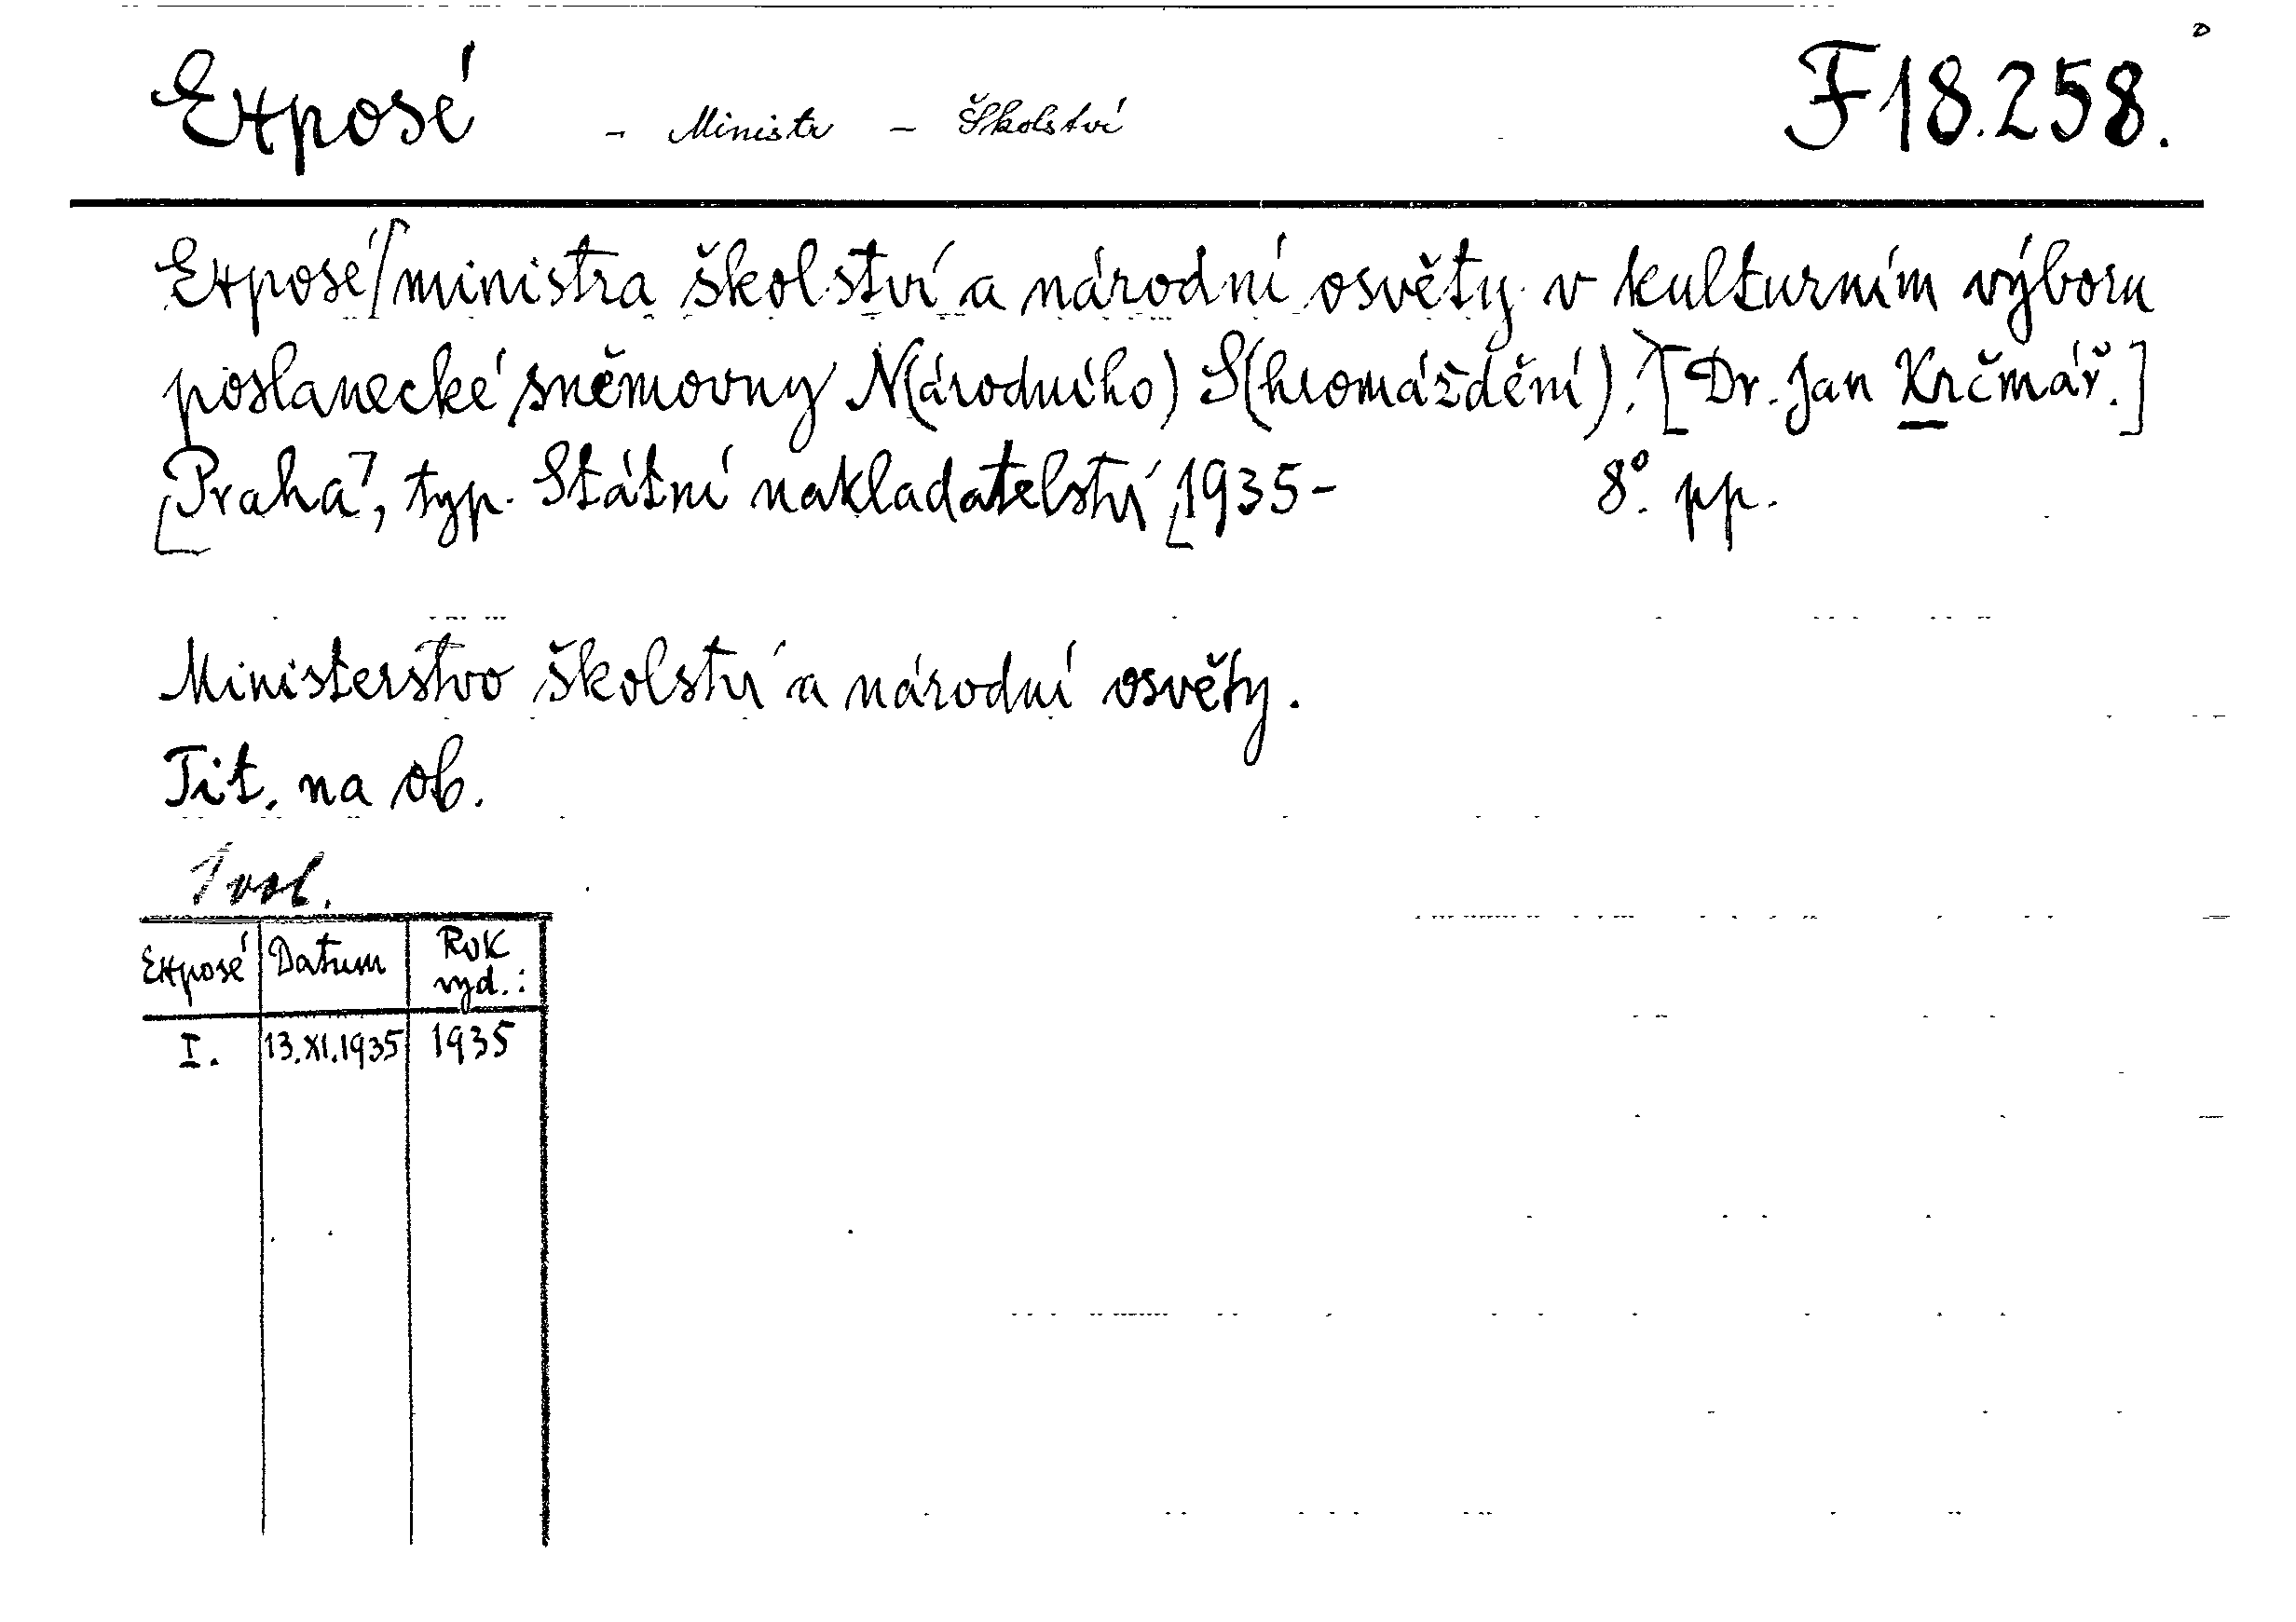 Exposé - Ministr - Školství F 18.258.
Exposé/ministra školství a národní osvěty v kulturním výboru
poslanecké sněmovny N(árodního) S(hromáždění). [Dr. Jan Krčmář.]
[Praha], typ. Státní nakladatelství [1935- 8°. pp.
Ministerstvo školství a národní osvěty.
Tit. na ob.
1 vol.
Exposé Datum Rok
vyd.:
I. 13.XI.1935 1935